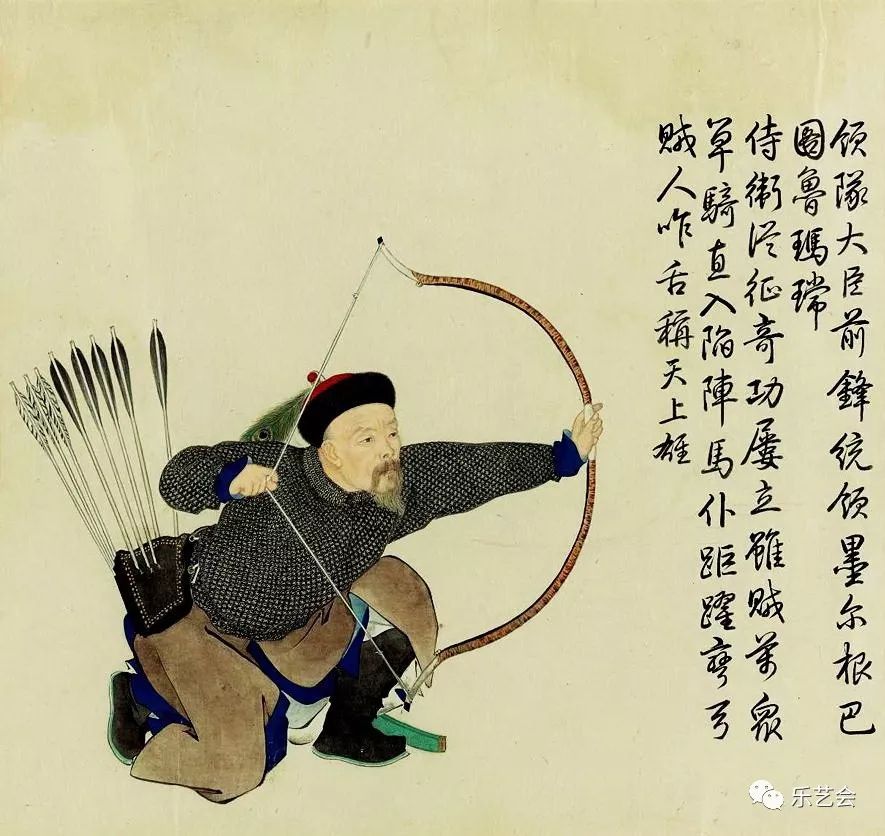 領隊大臣前鋒統領墨尔根巴
圖魯瑪瑺
侍衛從征奇功屢立雖賊萬衆
单騎直入陷陣馬仆距躍彎弓
賊人咋舌稱天上雄
乐艺会